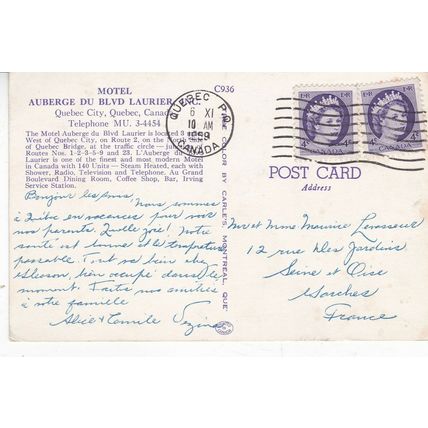 MOTEL
AUBERGE DU BLVD LAURIER
Quebec City, Quebec, Canada
Telephone MU. 3-4454
C936
The Motel Auberge du Blvd Laurier is located 3
West of Quebec City, on Route 2, on the North
of Quebec Bridge, at the traffic circle — ju
Routes Nos. 1-2-3-5-9 and 23. L'Auberge du
Laurier is one of the finest and most modern Motel
in Canada with 140 Units — Steam Heated, each with
Shower, Radio, Television and Telephone. Au Grand
Boulevard Dining Room, Coffee Shop, Bar, Irving
Service Station.
Bonjour les amis,
Nous sommes
à Québec en vacances pour voir
nos parents. Quelle joie! Notre
santé est bonne et la température
passable. Tout va bien chez
bien occupé dans le
moment. Faites nos amitiés
à votre famille
Alice & Camille
COLOR BY CARLE'S, MONTREAL, QUE
QUEBEC P.Q.
6 XI
10 AM
1959
CANADA
E II R
E II R
4¢
4¢
CANADA
CANADA
POST CARD
Address
Mr et Mme Maurice Levasseur
12 rue des Jardins
Seine et Oise
Garches
France